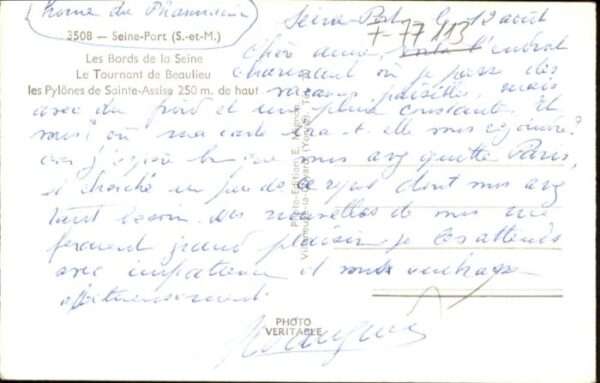 home du Pharmacien
3508 - Seine-Port (S.-et-M.)
Les Bords de la Seine
Le Tournant de Beaulieu
les Pylônes de Sainte-Assise 250 m. de haut
Seine-Port 12 août
7-77 113
Chère amie, l'endroit
charmant où je passe des
vacances paisibles, mais
avec du froid et une pluie constante. Et
vous? où ma carte ira-t-elle vous
car j'espère que vous avez quitté Paris,
et cherché un peu de repos dont vous avez
tant besoin. des nouvelles de vous me
feraient grand plaisir je les attends
avec impatience et vous embrasse
affectueusement.
Photo-Edition E. Mignon
PHOTO
VERITABLE